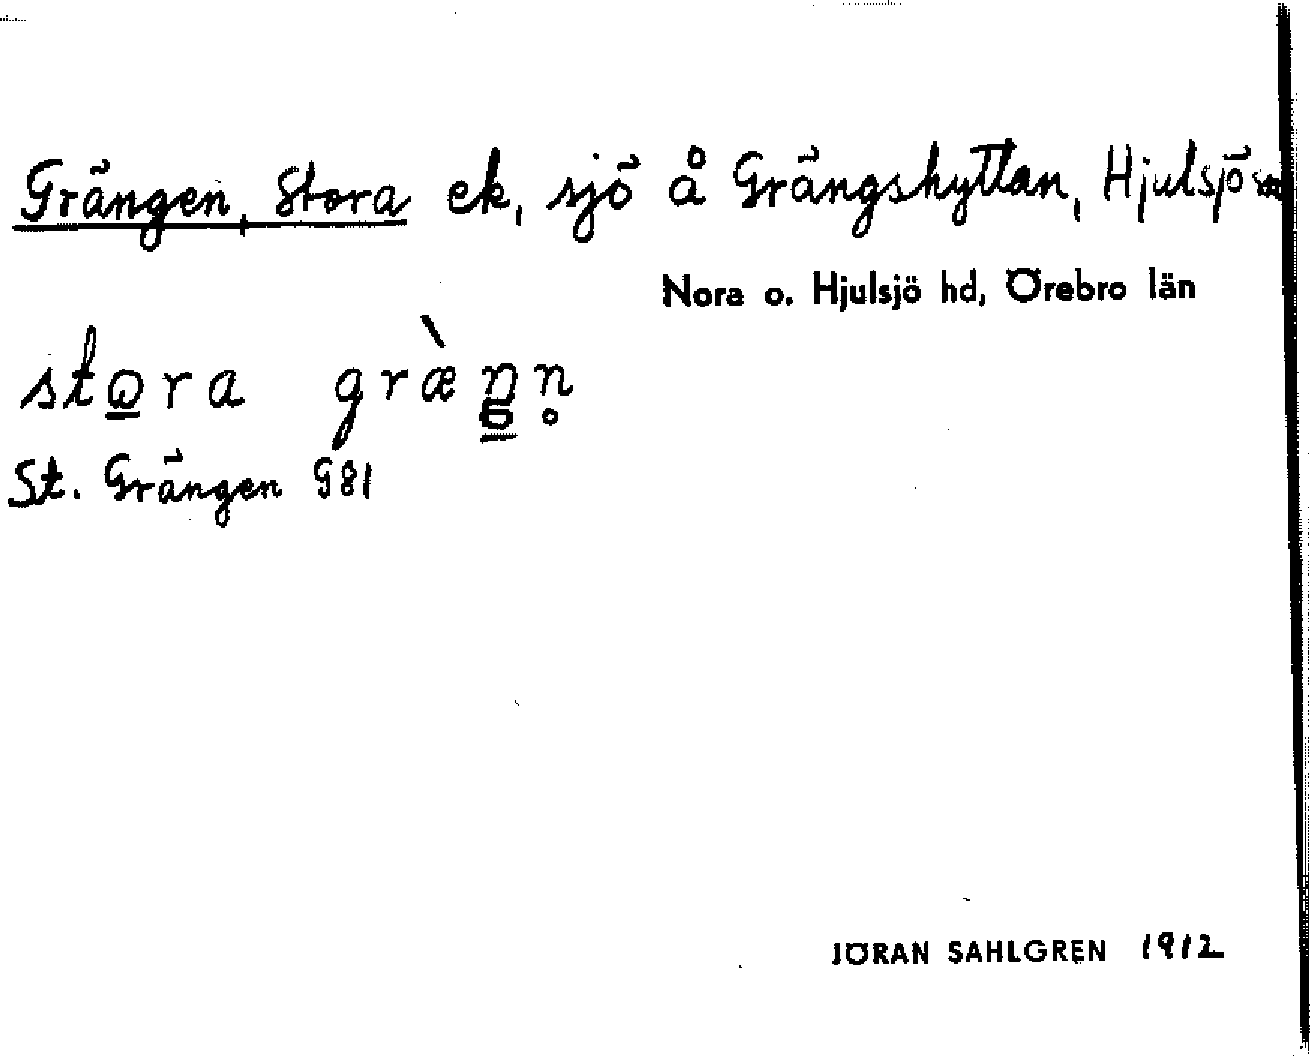 Grängen, Stora ek, sjö å Grängshyttan, Hjulsjö sn
Nora o. Hjulsjö hd, Örebro län
stora græ̀ŋn̥
St. Grängen G81
JÖRAN SAHLGREN 1912